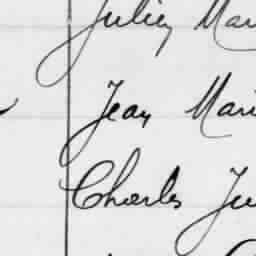 Julien Mari
Jean Mari
Charles Ju